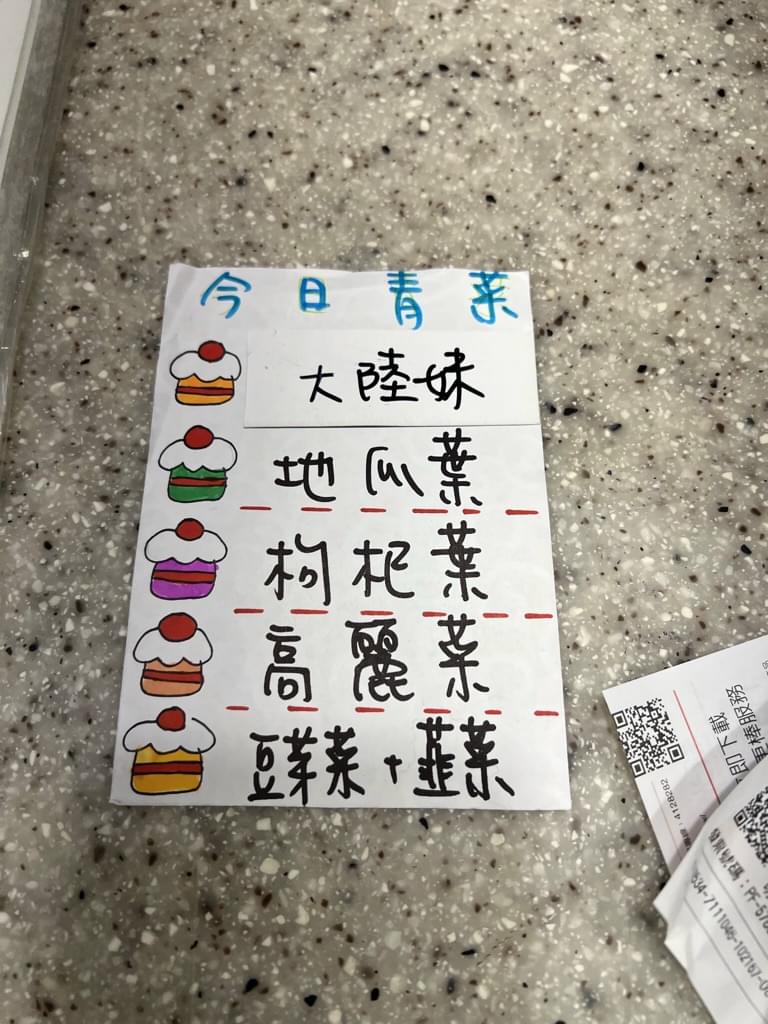 今日青菜
大陸妹
地瓜葉
枸杞葉
高麗菜
豆芽菜+韮菜
即下載
更棒服務
4128282
發票號碼:PF-578
534-7111046-102167-0